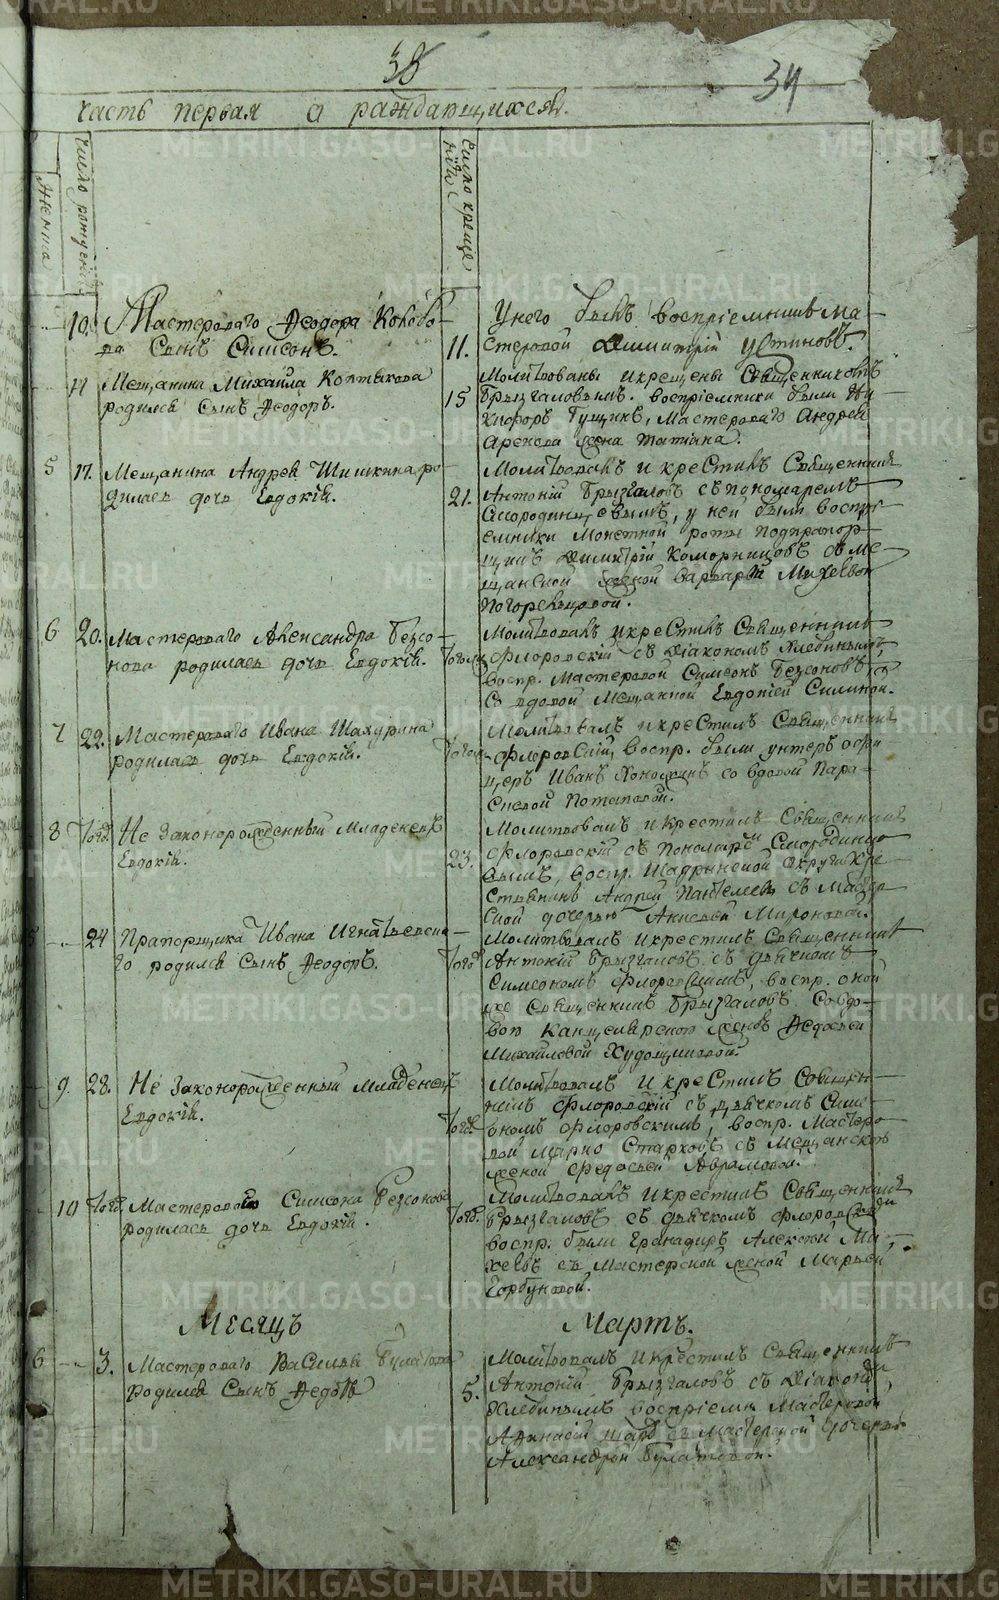 38
34
часть первая о раждающихся.
женска
число рождения
число крещения
10. Мастероваго Ѳеодора
сынъ Симеонъ.
11.
У него былъ воспріемникъ ма-
стеровой Димитрій Устиновъ.
11 Мещанина Михайла Коптякова
родился сынъ Ѳеодоръ.
15
Молитвованы и крещены священникомъ
Брызгаловымъ. воспріемники были Ни-
кифоръ Гущинъ, Мастероваго Андрея
жена Татіана.
5 17. Мещанина Андрея Шишкина ро-
дилась дочь Евдокія.
21.
Молитвовалъ и крестилъ Священникъ
Антоній Брызгаловъ съ пономаремъ
Смородинцевымъ, у ней были воспрі-
емники Монетной роты подпрапор-
щикъ Димитрій Коморницовъ съ ме-
щанской женой Варварой Михеевой
Погорельцовой.
6 20. Мастероваго Александра Безсо-
нова родилась дочь Евдокія.
Молитвовалъ и крестилъ Священникъ
Флоровскій съ Діакономъ Хлебинымъ,
воспр. Мастеровой Симеонъ Безсоновъ
съ вдовой Мещанкой Евдокіей Силиной.
7 22. Мастероваго Ивана Шахурина
родилась дочь Евдокія.
Молитвовалъ и крестилъ Священникъ
Флоровскій, воспр. были унтеръ офи-
церъ Иванъ со вдовой Пара-
скевой Потаповой.
8 Тогд. Не законорожденный младенецъ
Евдокія.
23.
Молитвовалъ и крестилъ Священникъ
Флоровскій съ пономаремъ Смородинцо-
вымъ, воспр. Шадринской округи кре-
стьянинъ Андрей Пантелеевъ съ масте-
ской дочерью Анисьей Мироновой.
5 24 Прапорщика Ивана Игнатьевска-
го родился сынъ Ѳеодоръ.
Тогд.
Молитвовалъ и крестилъ Священникъ
Антоній Брызгаловъ съ дьячкомъ
Симеономъ Флоровскимъ, воспр. оной
же Священникъ Брызгаловъ со вдо-
вой Канцелярской женой Ѳедосьей
Михайловой Худощиновой.
9. 28. Не законорожденный младенецъ
Евдокія.
Тогд.
Молитвовалъ и крестилъ Священ-
никъ Флоровскій съ дьячкомъ Симе-
ономъ Флоровскимъ, воспр. Мастеро-
вой Старковъ съ Мещанской
женой Федосьей Аврамовой.
10 Тогд. Мастероваго Симеона Безсонова
родилась дочь Евдокія.
Тогд.
Молитвовалъ и крестилъ Священникъ
Брызгаловъ съ дьячкомъ Флоровскимъ
воспр. были Гранадиръ Алексѣй Ми-
хеевъ съ Мастерской женой Марьей
Горбуновой.
Месяцъ Мартъ.
6 3. Мастероваго Василья Булатова
родился сынъ Ѳедотъ
5.
Молитвовалъ и крестилъ Священникъ
Антоній Брызгаловъ съ Діакономъ
Хлебинымъ воспріемн. Мастеровой
съ мастерской дочерью
Александрой Булатовой.